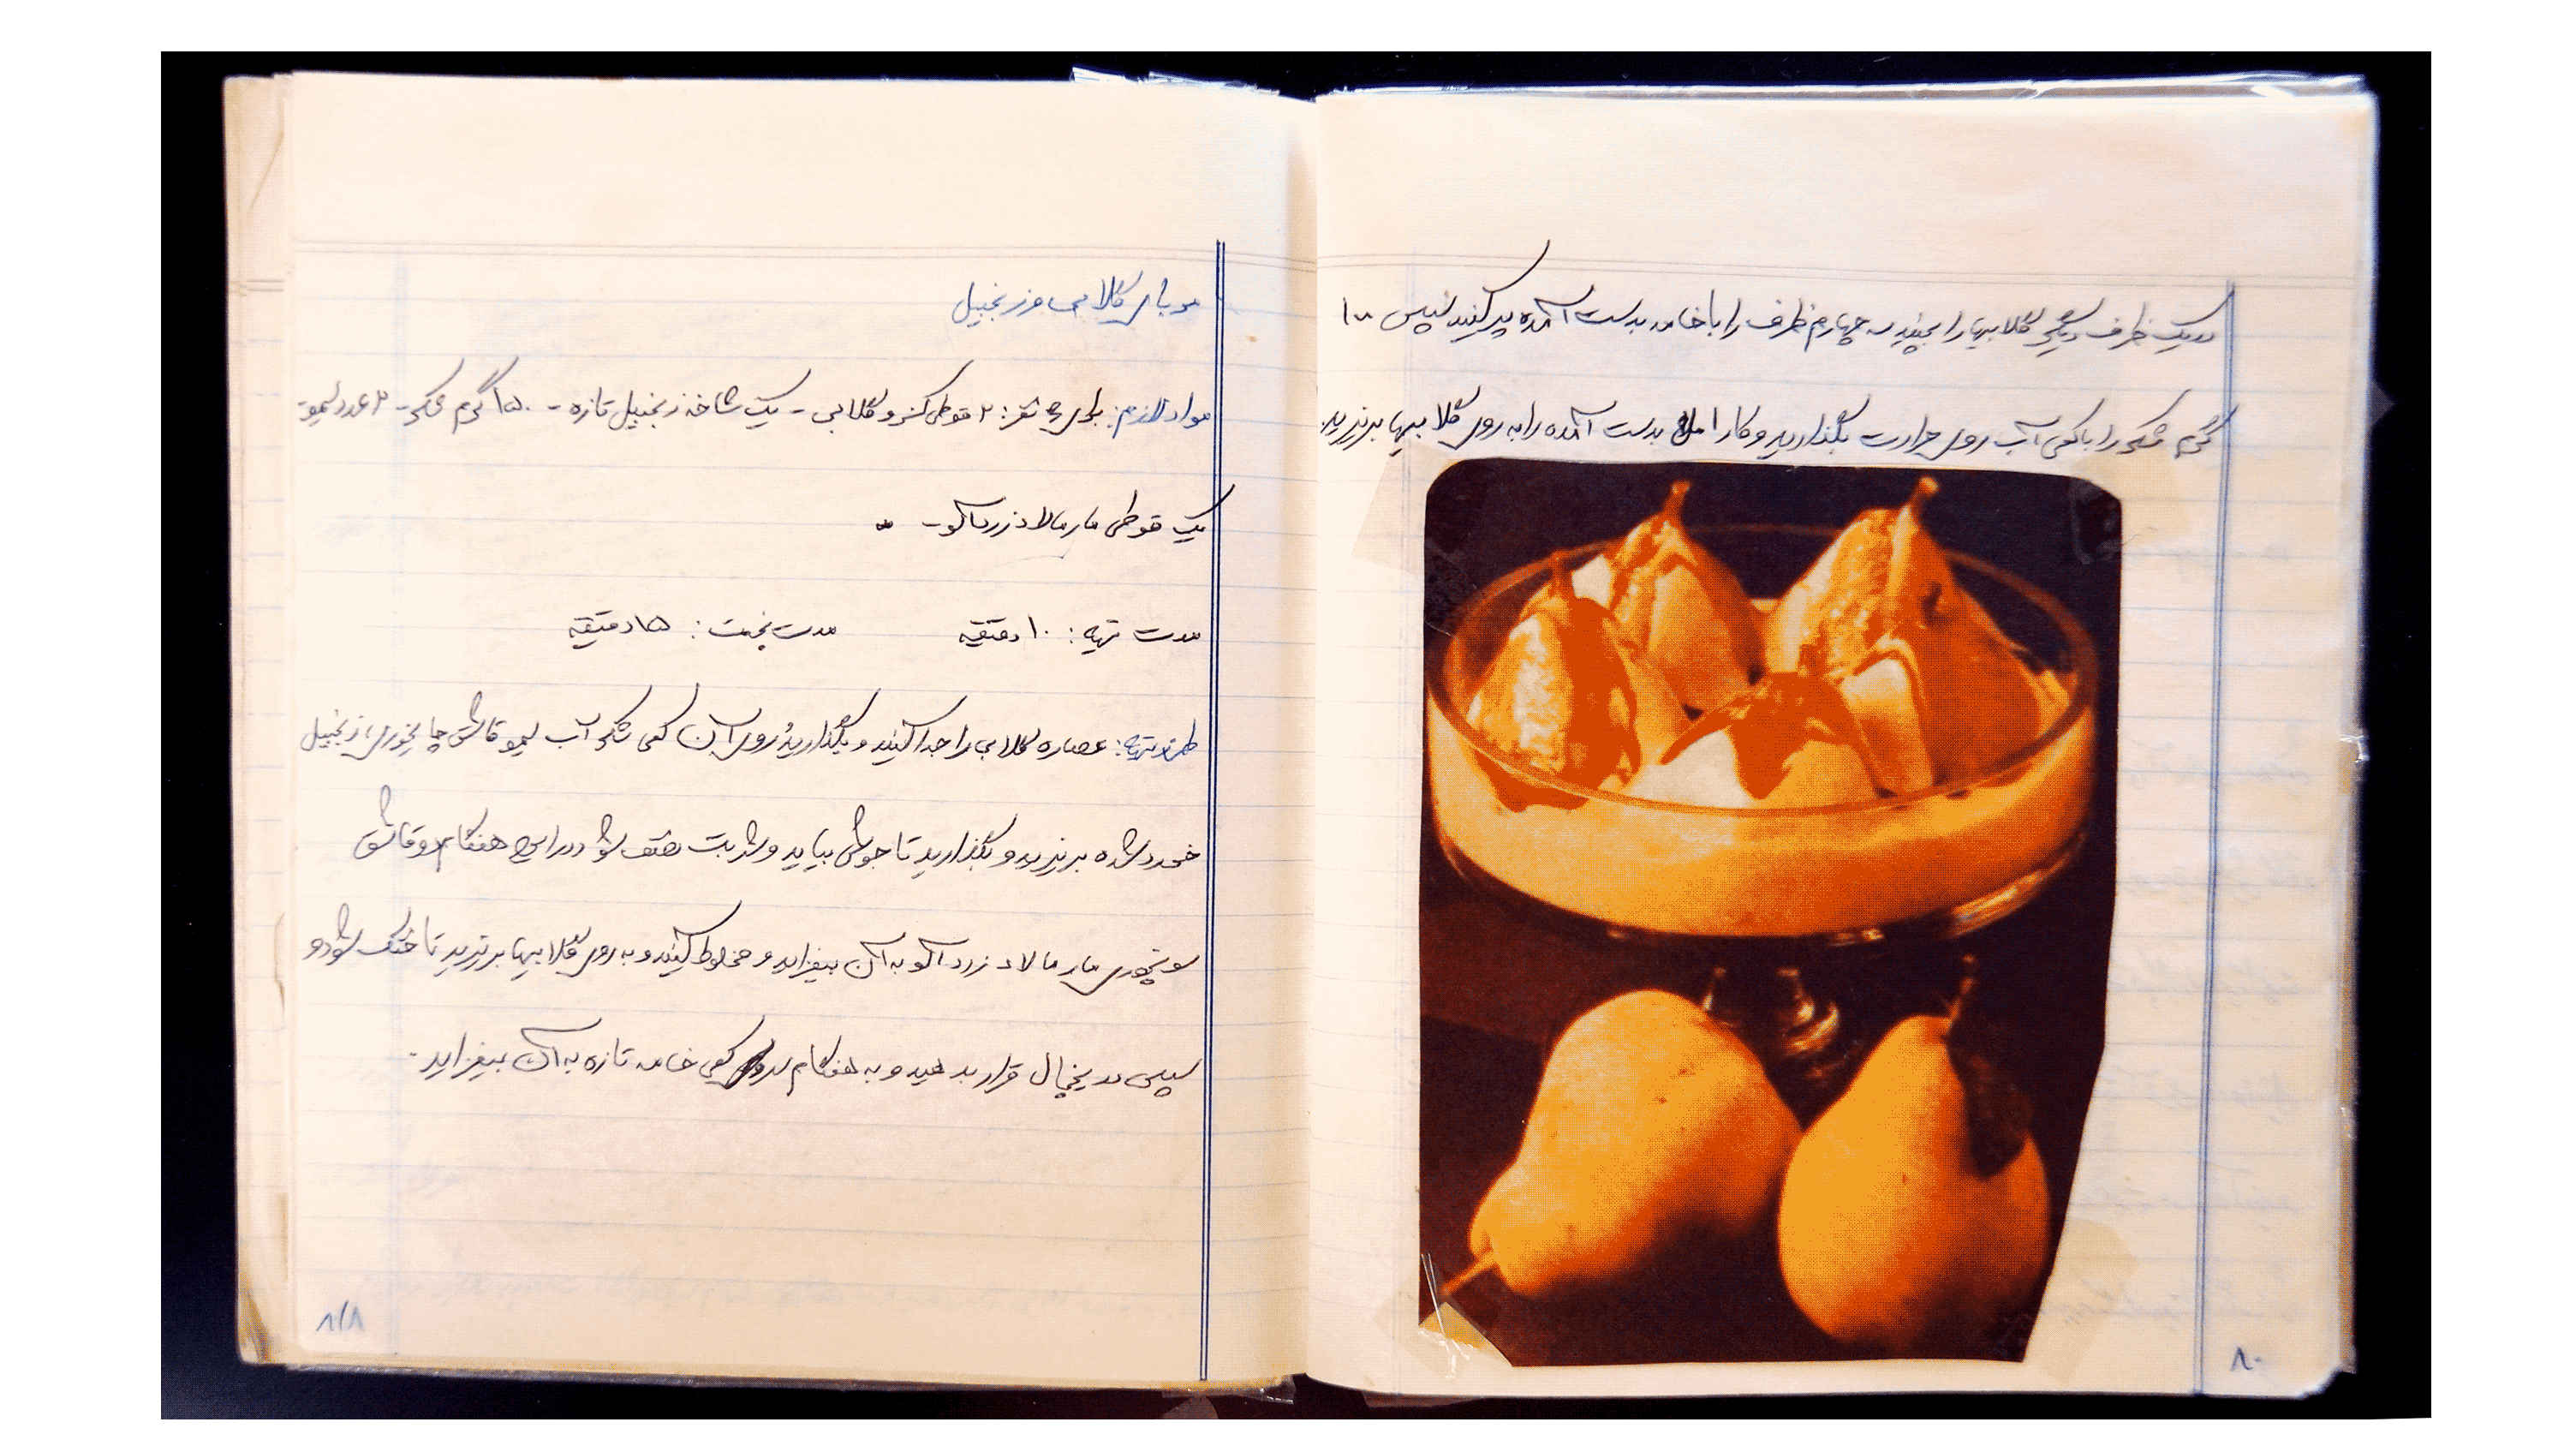 در یک ظرف دیگر گلابیها را بچینید سه چهارم ظرف را با خامه بدست آمده پر کنید سپس ۱۰۰
گرم شکر را با کمی آب روی حرارت بگذارید و کارامل بدست آمده را به روی گلابیها بریزید.
۸۰
مربای گلابی و زنجبیل
مواد لازم: برای ۶ نفر: ۲ قوطی کنسرو گلابی - یک شاخه زنجبیل تازه - ۱۵۰ گرم شکر - ۲ عدد لیمو -
یک قوطی مارمالاد زردآلو -
مدت تهیه: ۱۰ دقیقه مدت پخت: ۱۵ دقیقه
طرز تهیه: عصاره گلابی را جدا کنید و بگذارید روی آن کمی شکر آب لیمو قاشق چایخوری زنجبیل
خورد شده بریزید و بگذارید تا جوش بیاید و شربت سفت شود در این هنگام دو قاشق
سوپخوری مارمالاد زردآلو به آن بیفزایید و مخلوط کنید و به روی گلابیها بریزید تا خنک شود و
سپس در یخچال قرار بدهید و به هنگام سرو کمی خامه تازه به آن بیفزایید.
۸۱